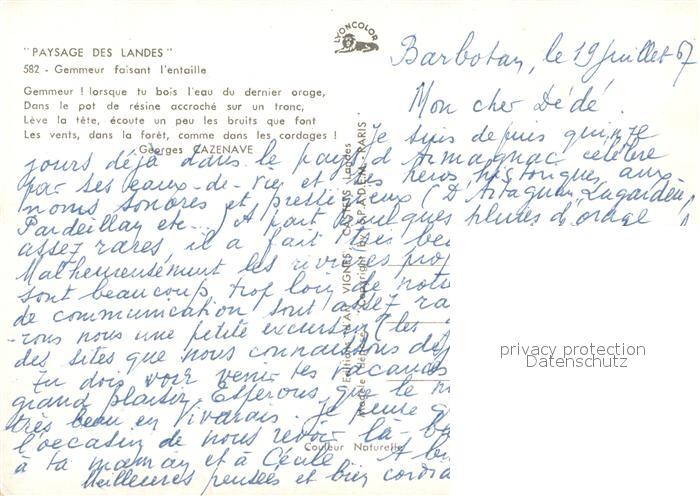 LYONCOLOR
"PAYSAGE DES LANDES"
582 - Gemmeur faisant l'entaille
Gemmeur ! lorsque tu bois l'eau du dernier orage,
Dans le pot de résine accroché sur un tronc,
Lève la tête, écoute un peu les bruits que font
Les vents, dans la forêt, comme dans les cordages !
Georges CAZENAVE
Barbotan, le 19 Juillet 67
Mon cher Dédé.
Je suis depuis quinze
jours déjà dans le pays d'Armagnac célèbre
par ses eaux-de-vie et ses héros historiques aux
noms sonores et prestigieux (D'Artagnan Lagardère,
Pardeillan etc...) A part quelques pluies d'orage
assez rares il a fait très be
Malheureusement les rivières pro
sont beaucoup trop loin de notre
de communication sont assez ra
rons nous une petite excursion (les
des sites que nous connaissons déj
Tu dois voir venir les vacances
grand plaisir. Espérons que le m
très beau en Vivarais. Je pense q
l'occasion de nous revoir là-ba
à ta maman et à Cécile. A be
Meilleures pensées et bien cordia
Editions d'Art VIGNES CASTETS (Landes)
Copyright by SPADEM PARIS
Couleur Naturelle
privacy protection
Datenschutz